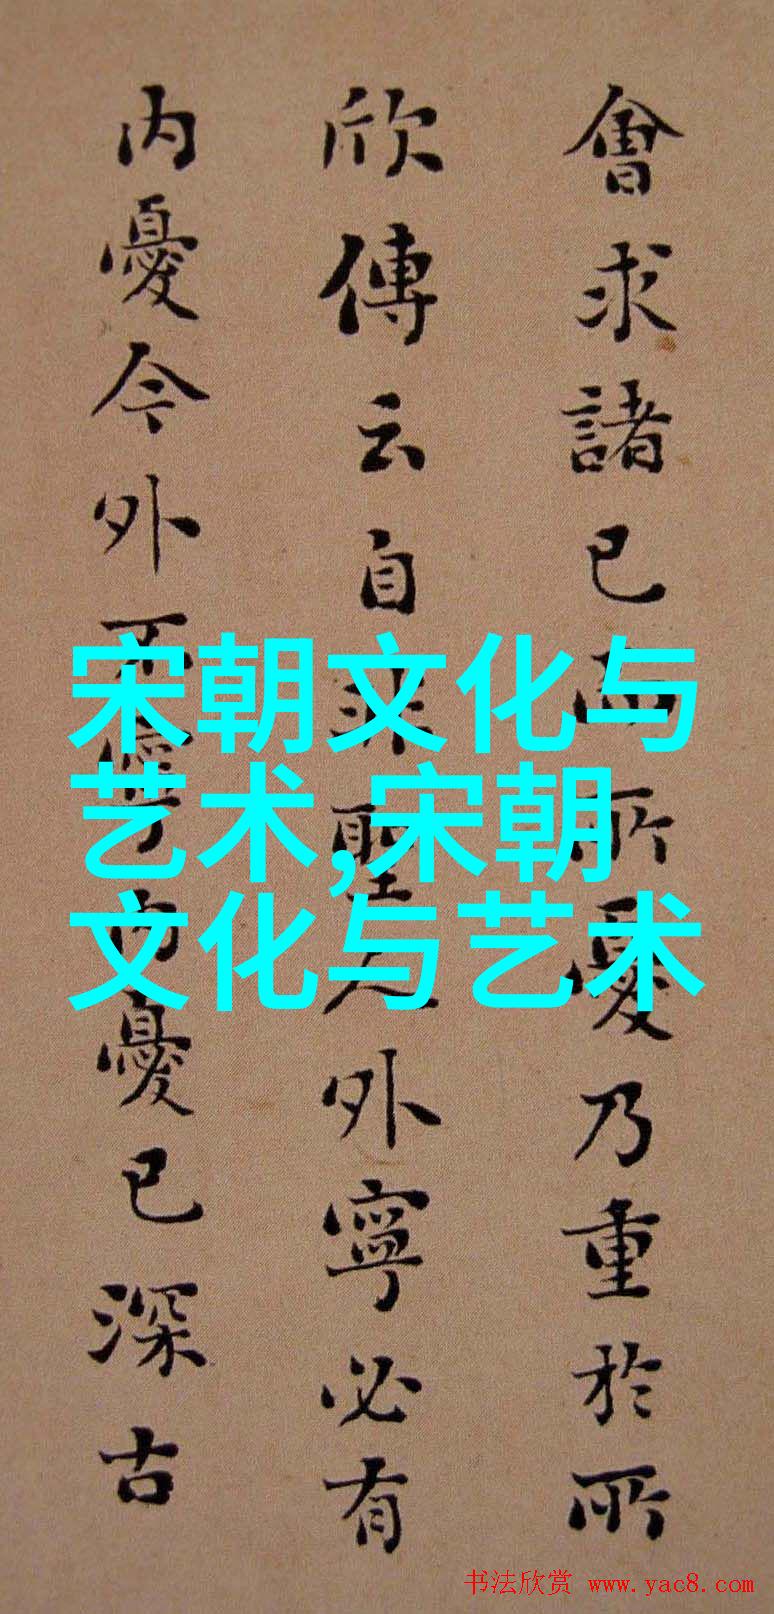 會求諸己而所憂乃重於所
欣傳云自非聖人外寧必有
内憂今外不寧内憂已深古
宋朝文化与
艺术,宋朝
文化与艺术
书法欣赏 www.yac8.com